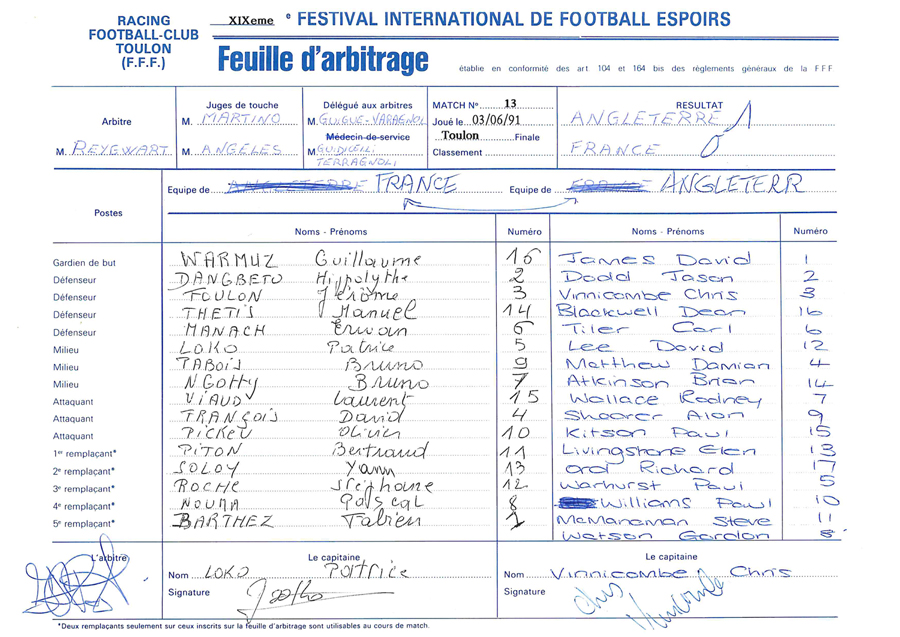 RACING
FOOTBALL-CLUB
TOULON
(F.F.F.)
XIXeme e FESTIVAL INTERNATIONAL DE FOOTBALL ESPOIRS
Feuille d'arbitrage
établie en conformité des art 104 et 164 bis des règlements généraux de la FFF
Arbitre
M. REYGWART
Juges de touche
M. MARTINO
M. ANGELES
Délégué aux arbitres
M. GUIGUE-VARAGNOL
Médecin de service
M. GUIDICELI
TERRAGNOLI
MATCH N° 13
Joué le 03/06/91
Toulon Finale
Classement
RESULTAT
ANGLETERRE 1
FRANCE 0
Postes
Equipe de ANGLETERRE FRANCE
Equipe de FRANCE ANGLETERR
Noms - Prénoms Numéro Noms - Prénoms Numéro
Gardien de but WARMUZ Guillaume 16 James David 1
Défenseur DANGBETO Hippolythe 2 Dodd Jason 2
Défenseur TOULON Jérôme 3 Vinnicombe Chris 3
Défenseur THETIS Manuel 14 Blackwell Dean 16
Défenseur MANACH Erwan 6 Tiler Carl 6
Milieu LOKO Patrice 5 Lee David 12
Milieu TABOIS Bruno 9 Matthew Damian 4
Milieu NGOTTY Bruno 7 Atkinson Brian 14
Attaquant VIAUD Laurent 15 Wallace Rodney 7
Attaquant FRANÇOIS David 4 Shearer Alan 9
Attaquant PICKEU Olivier 10 Kitson Paul 15
1er remplaçant* PITON Bertrand 11 Livingstone Glen 13
2e remplaçant* SOLOY Yann 13 Ord Richard 17
3e remplaçant* ROCHE Stéphane 12 Warhurst Paul 5
4e remplaçant* NOUMA Pascal 8 Williams Paul 10
5e remplaçant* BARTHEZ Fabien 1 McManaman Steve 11
Watson Gordon 8
L'arbitre
Le capitaine
Nom LOKO Patrice
Signature
Le capitaine
Nom Vinnicombe Chris
Signature Chris Vinnicombe
*Deux remplaçants seulement sur ceux inscrits sur la feuille d'arbitrage sont utilisables au cours de match.